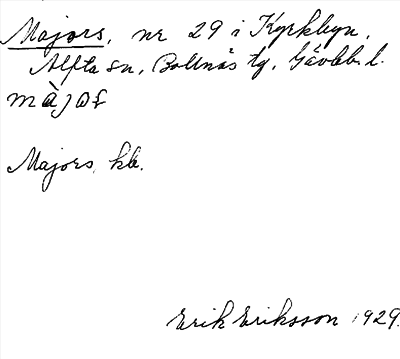 Majors, nr 29 i Kyrkbyn,
Alfta sn, Bollnäs tg, Gävleb. l.
Majors, kb.
Erik Eriksson 1929.